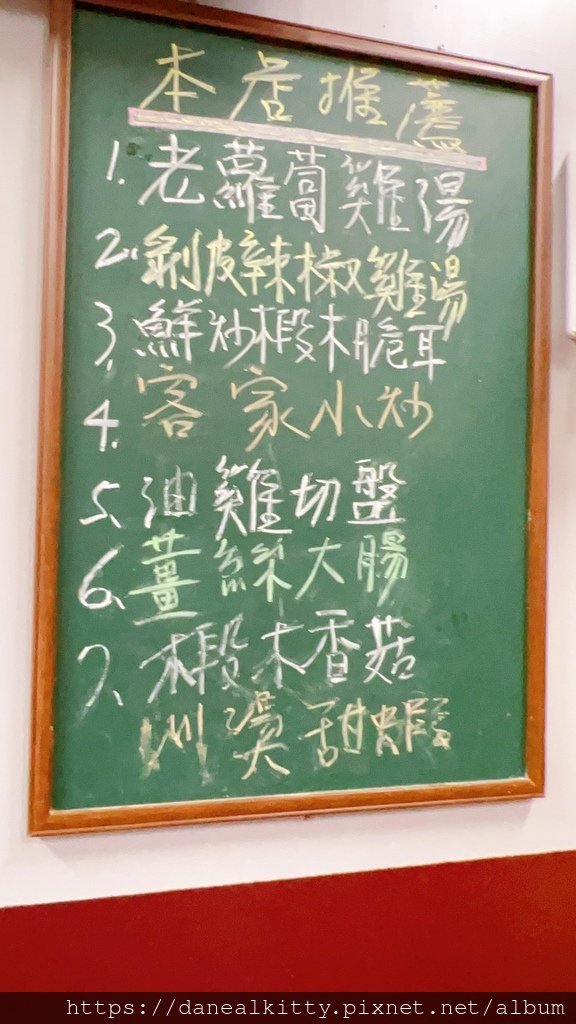 本店推薦
1. 老蘿蔔雞湯
2. 剝皮辣椒雞湯
3. 鮮炒椴木脆耳
4. 客家小炒
5. 油雞切盤
6. 薑絲大腸
7. 椴木香菇
川燙甜蝦
https://danealkitty.pixnet.net/album